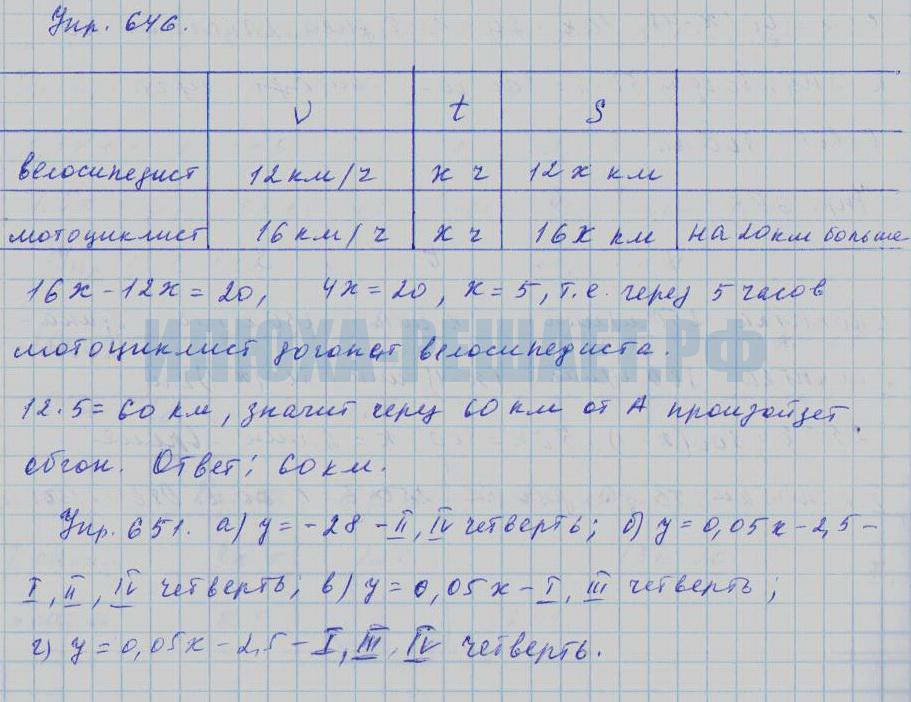 Упр. 646.
V t S
велосипедист 12 км/ч х ч 12 х км
мотоциклист 16 км/ч х ч 16х км на 20 км больше
16х - 12х = 20, 4х = 20, х = 5, т.е. через 5 часов
мотоциклист догонит велосипедиста.
ИЛЮХА-РЕШАЕТ.РФ
12·5 = 60 км, значит через 60 км от А произойдет
обгон. Ответ: 60 км.
Упр. 651. а) у = -28 - II, IV четверть; б) у = 0,05х - 2,5 -
I, II, IV четверть; в) у = 0,05х - I, III четверть;
г) у = 0,05х - 2,5 - I, III, IV четверть.